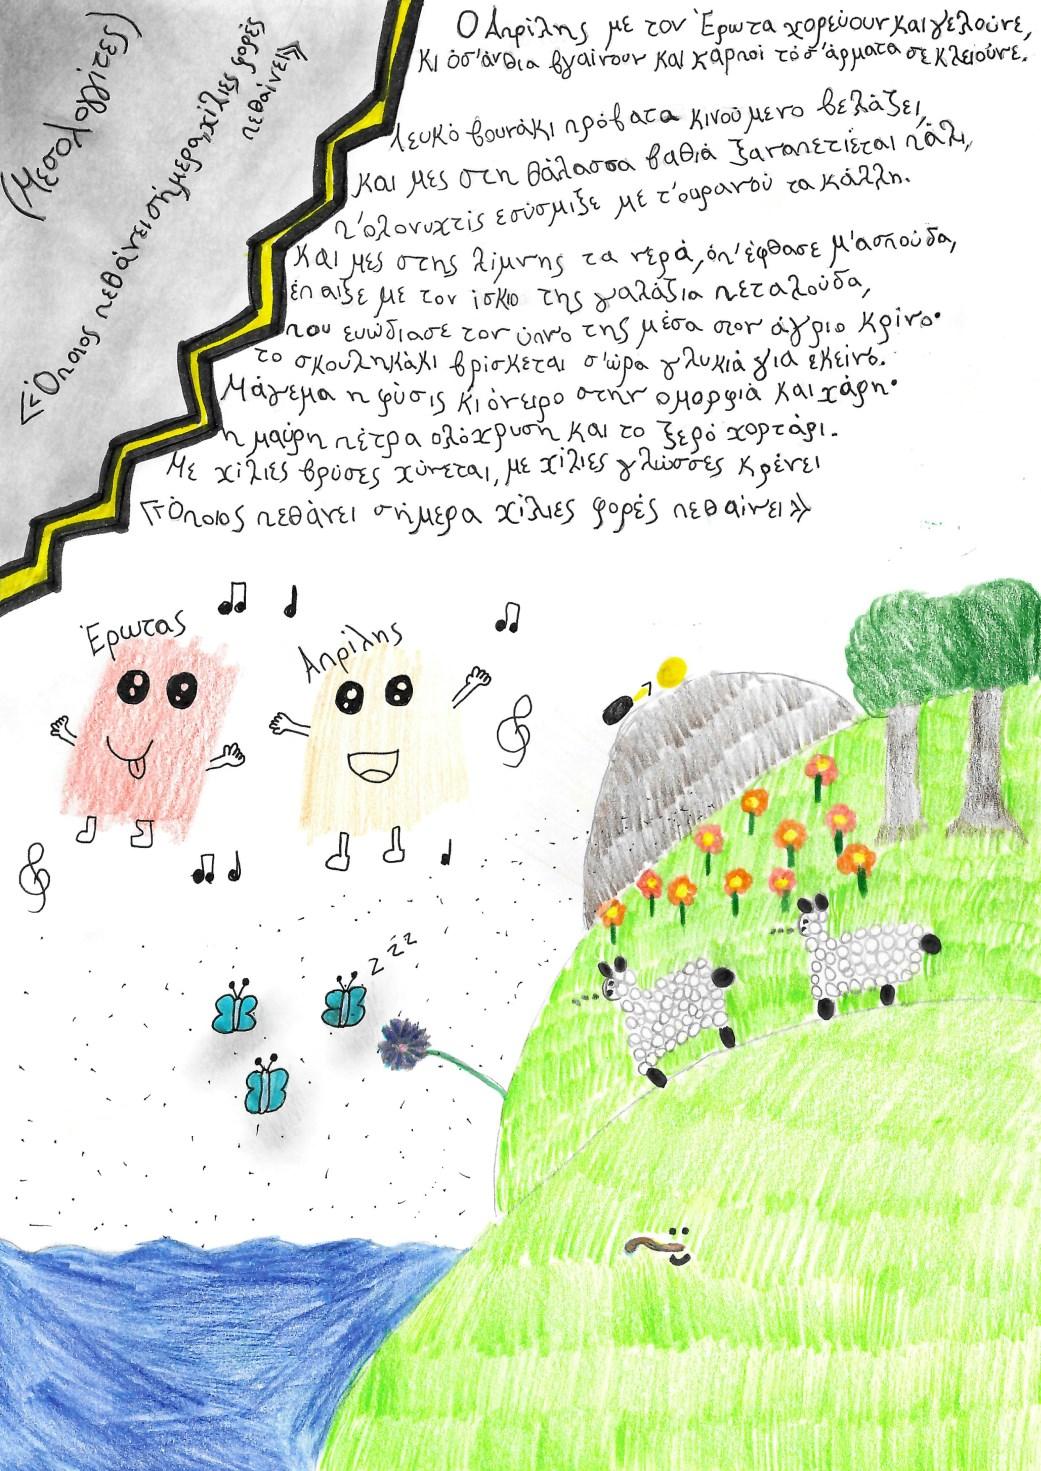 (Μεσολογγίτες)
«Όποιος πεθάνει σήμερα, χίλιες φορές
πεθαίνει»
Ο Απρίλης με τον Έρωτα χορεύουν και γελούνε,
κι όσ' άνθια βγαίνουν και καρποί τόσ' άρματα σε κλειούνε.
Λευκό βουνάκι πρόβατα κινούμενο βελάζει,
και μες στη θάλασσα βαθιά ξαναπετιέται πάλι,
π' ολονυχτίς εσύσμιξε με τ' ουρανού τα κάλλη.
Και μες στης λίμνης τα νερά, όπ' έφθασε μ' ασπούδα,
έπαιξε με τον ίσκιο της γαλάζια πεταλούδα,
που ευώδιασε τον ύπνο της μέσα στον άγριο κρίνο·
το σκουληκάκι βρίσκεται σ' ώρα γλυκιά για εκείνο.
Μάγεμα η φύσις κι όνειρο στην ομορφιά και χάρη·
η μαύρη πέτρα ολόχρυση και το ξερό χορτάρι.
Με χίλιες βρύσες χύνεται, με χίλιες γλώσσες κρένει
«Όποιος πεθάνει σήμερα χίλιες φορές πεθαίνει»
Έρωτας
Απρίλης
z z z